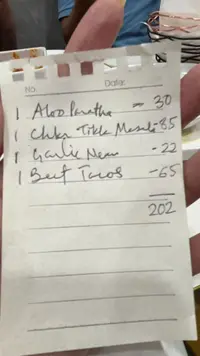 No. Date:
1 Aloo Paratha - 30
1 Chkn Tikka Masala - 85
1 Garlic Nean - 22
1 Beef Tacos - 65
202